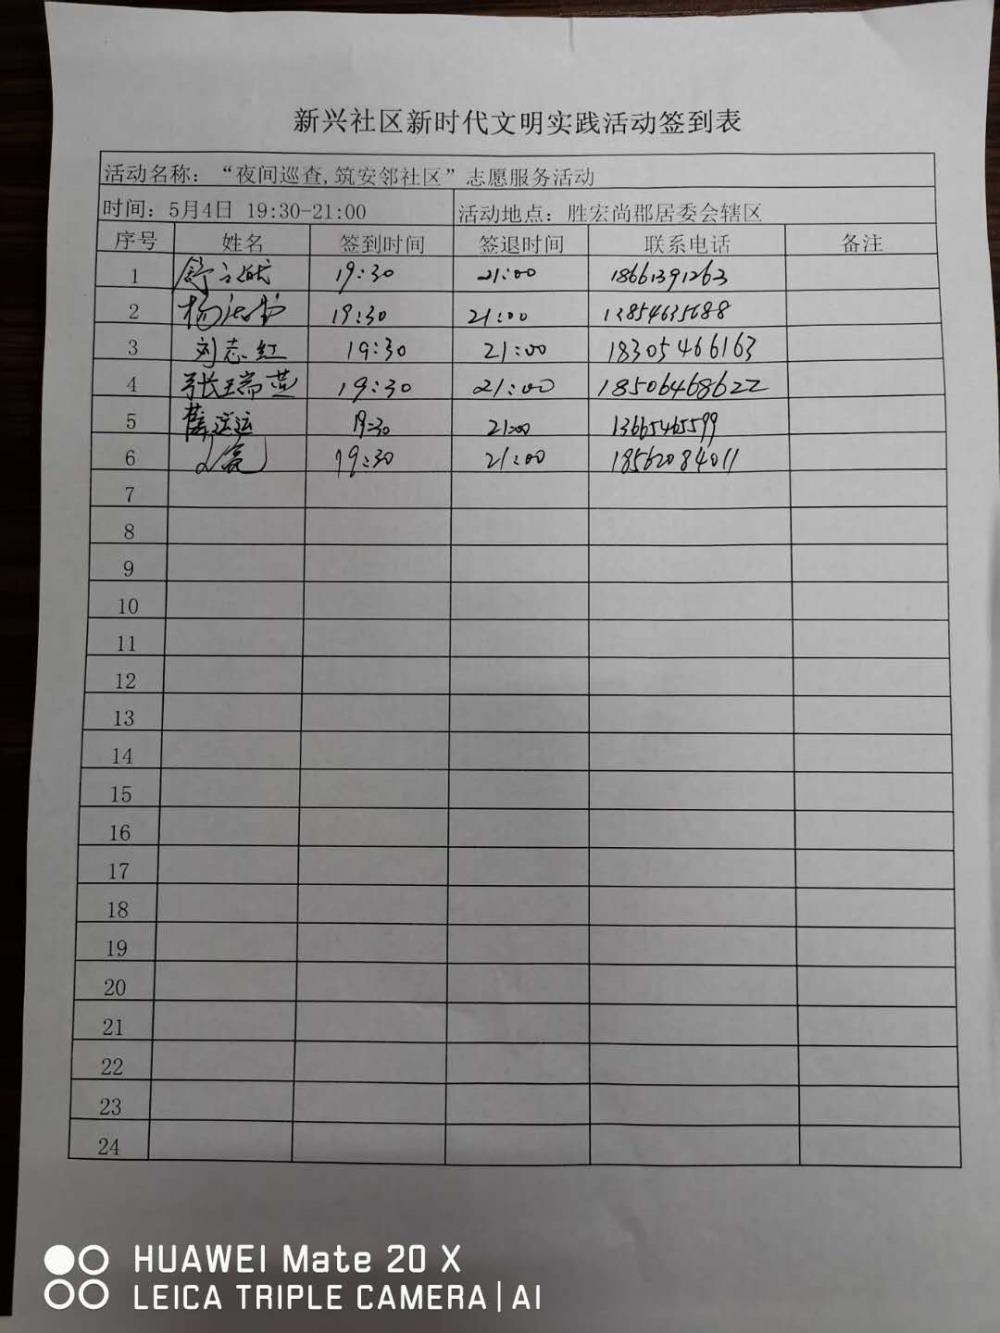 新兴社区新时代文明实践活动签到表
活动名称：“夜间巡查,筑安邻社区”志愿服务活动
时间：5月4日 19:30-21:00 活动地点：胜宏尚郡居委会辖区
序号 姓名 签到时间 签退时间 联系电话 备注
1 19:30 21:00 18661391263
2 19:30 21:00 13854635688
3 刘志红 19:30 21:00 18305466163
4 张瑞燕 19:30 21:00 18506468622
5 19:30 21:00 13665465599
6 19:30 21:00 18562084011
7
8
9
10
11
12
13
14
15
16
17
18
19
20
21
22
23
24
HUAWEI Mate 20 X
LEICA TRIPLE CAMERA | AI